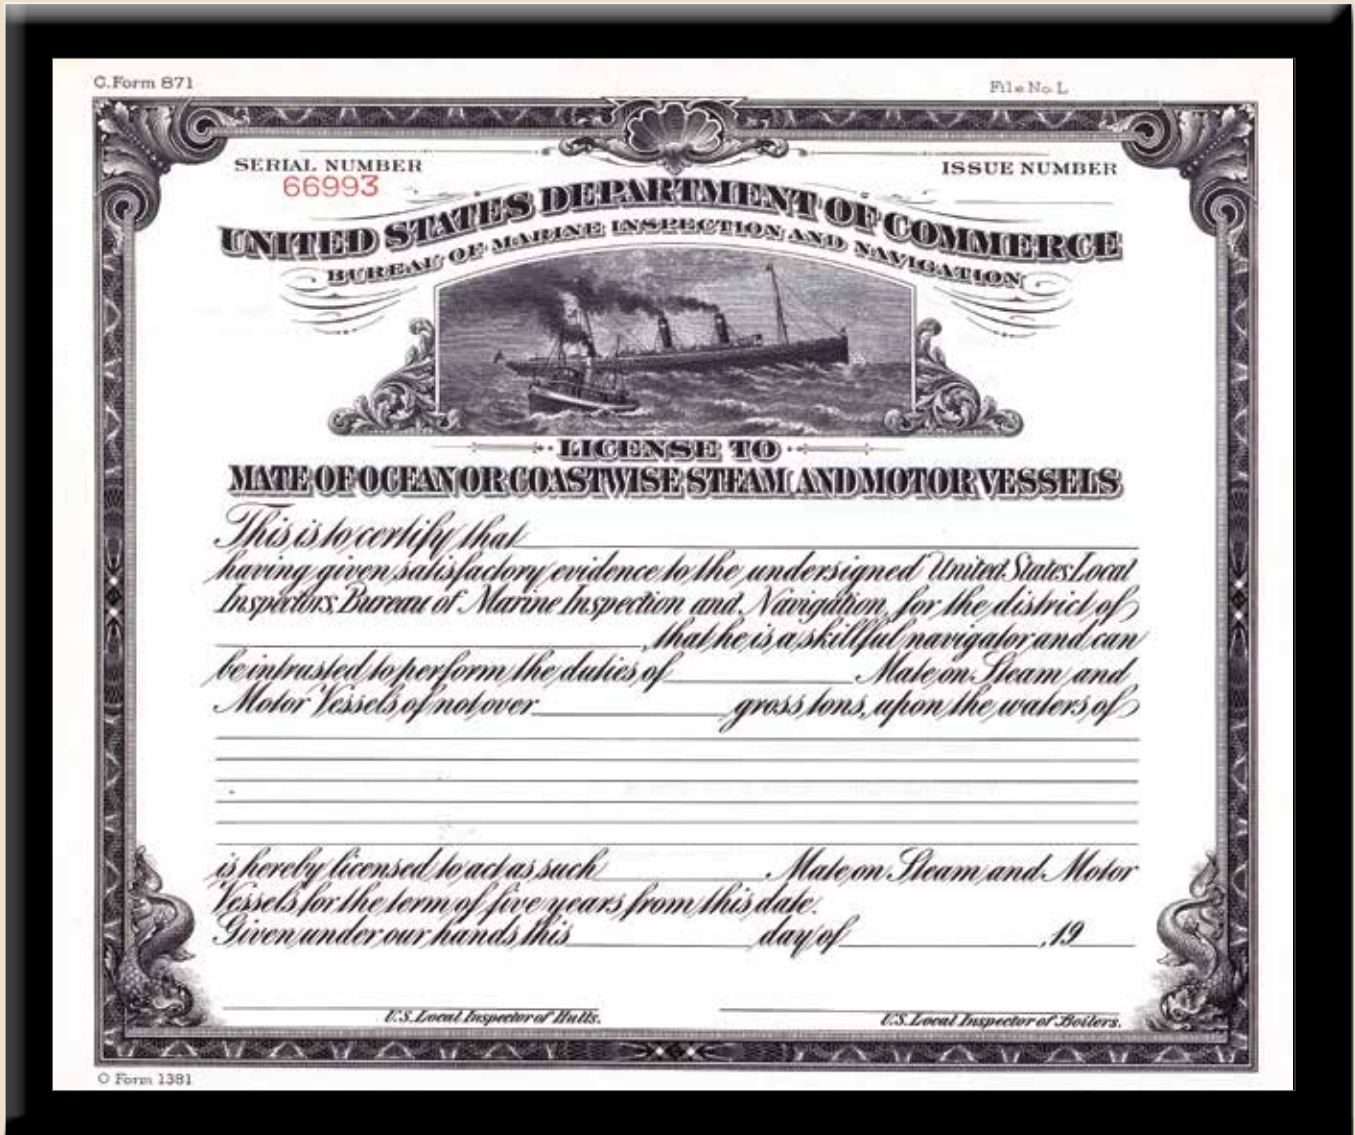 C. Form 871
File No. L
SERIAL NUMBER
66993
ISSUE NUMBER
UNITED STATES DEPARTMENT OF COMMERCE
BUREAU OF MARINE INSPECTION AND NAVIGATION
LICENSE TO
MATE OF OCEAN OR COASTWISE STEAM AND MOTOR VESSELS
This is to certify that
having given satisfactory evidence to the undersigned United States Local
Inspectors, Bureau of Marine Inspection and Navigation, for the district of
, that he is a skillful navigator and can
be intrusted to perform the duties of Mate on Steam and
Motor Vessels of not over gross tons, upon the waters of
is hereby licensed to act as such Mate on Steam and Motor
Vessels for the term of five years from this date.
Given under our hands, this day of , 19
U.S. Local Inspector of Hulls.
U.S. Local Inspector of Boilers.
O Form 1381